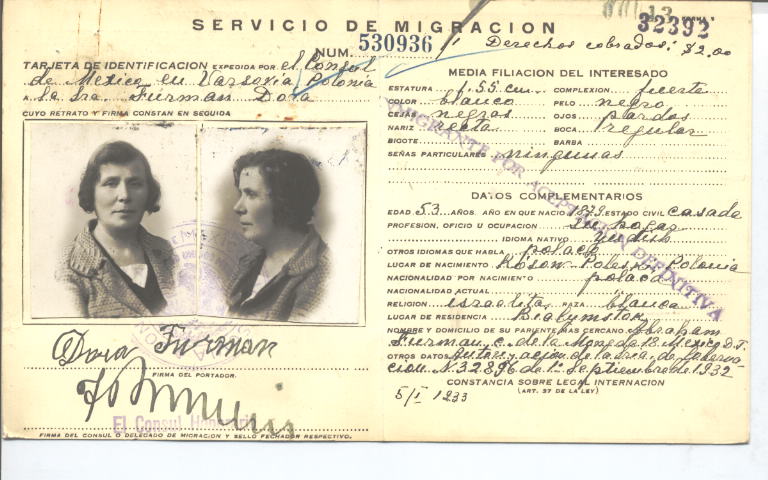 SERVICIO DE MIGRACION
32392
NUM. 530936
Derechos cobrados: $2.00
TARJETA DE IDENTIFICACION EXPEDIDA POR el Consul
de Mexico en Varsovia Polonia
A la Sra. Furman Dora
CUYO RETRATO Y FIRMA CONSTAN EN SEGUIDA
Dora Furman
FIRMA DEL PORTADOR.
El Consul Honorario
FIRMA DEL CONSUL O DELEGADO DE MIGRACION Y SELLO FECHADOR RESPECTIVO.
MEDIA FILIACION DEL INTERESADO
ESTATURA 1.55 cm. COMPLEXION fuerte
COLOR blanco PELO negro
CEJAS negras OJOS pardos
NARIZ recta BOCA regular
BIGOTE BARBA
SEÑAS PARTICULARES ningunas
INMIGRANTE POR ACEPTACION DEFINITIVA
DATOS COMPLEMENTARIOS
EDAD 53 AÑOS. AÑO EN QUE NACIO 1879 ESTADO CIVIL casada
PROFESION, OFICIO U OCUPACION su hogar
IDIOMA NATIVO yidish
OTROS IDIOMAS QUE HABLA polaco
LUGAR DE NACIMIENTO Polonia
NACIONALIDAD POR NACIMIENTO polaca
NACIONALIDAD ACTUAL
RELIGION israelita RAZA blanca
LUGAR DE RESIDENCIA
NOMBRE Y DOMICILIO DE SU PARIENTE MAS CERCANO Abraham
Furman, c. de la Moneda 18. Mexico D.F.
OTROS DATOS de la Sria. de Goberna
cion N. 32896 de 1° Septiembre de 1932
CONSTANCIA SOBRE LEGAL INTERNACION
(ART. 37 DE LA LEY)
5/I 1933